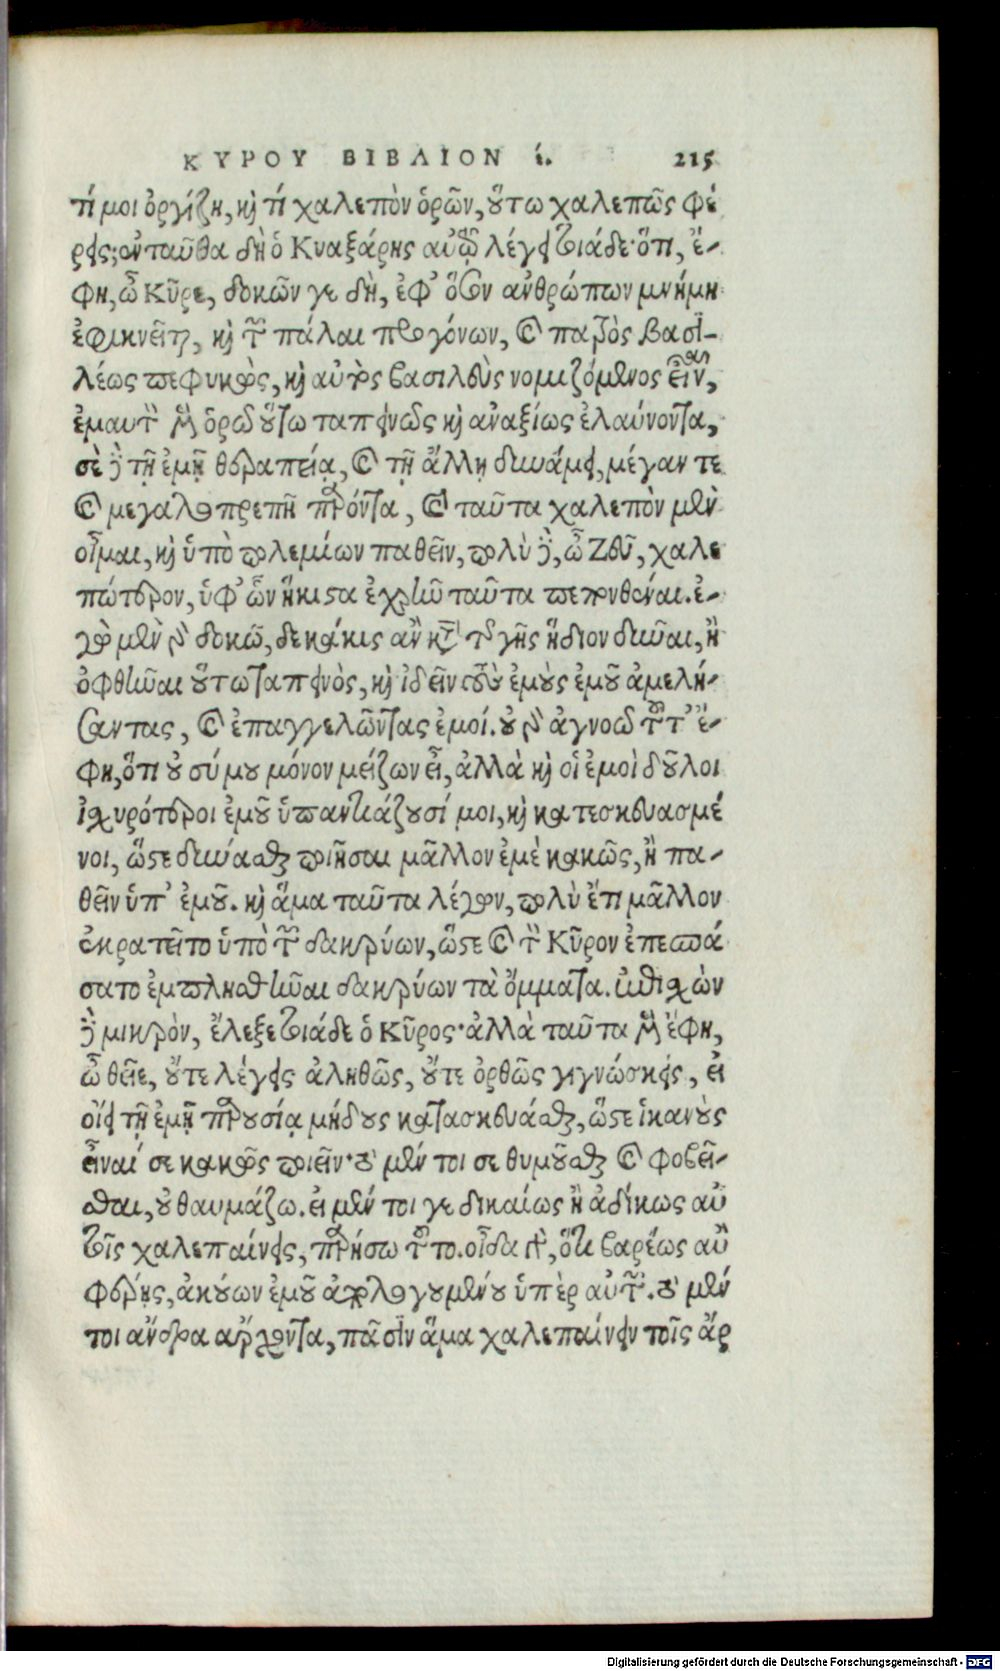 ΚΥΡΟΥ ΒΙΒΛΙΟΝ έ. 215
τί μοι ὀργίζῃ, καὶ τί χαλεπὸν ὁρῶν, οὕτω χαλεπῶς φέ
ρεις; ἐνταῦθα δὴ ὁ Κυαξάρης αὐτῷ λέγει τιάδε· ὅτι, ἔ-
φη, ὦ Κῦρε, δοκῶν γε δὴ, ἐφ' ὅσον ἀνθρώπων μνήμη
ἐφικνεῖται, καὶ τῶν πάλαι προγόνων, καὶ πατρὸς βασι-
λέως πεφυκὼς, καὶ αὐτὸς βασιλεὺς νομιζόμενος εἶναι,
ἐμαυτὸν μὲν ὁρῶ οὕτω ταπεινῶς καὶ ἀναξίως ἐλαύνοντα,
σὲ δὲ τῇ ἐμῇ θεραπείᾳ, καὶ τῇ ἄλλῃ δυνάμει, μέγαν τε
καὶ μεγαλοπρεπῆ παρόντα, καὶ ταῦτα χαλεπὸν μὲν
οἶμαι, καὶ ὑπὸ πολεμίων παθεῖν, πολὺ δὲ, ὦ Ζεῦ, χαλε
πώτερον, ὑφ' ὧν ἥκιστα ἐχρῆν ταῦτα πεπονθέναι. ἐ-
γὼ μὲν γὰρ δοκῶ, δεκάκις ἂν κατὰ τῆς γῆς ἥδιον δῦναι, ἢ
ὀφθῆναι οὕτω ταπεινὸς, καὶ ἰδεῖν τοὺς ἐμοὺς ἐμοῦ ἀμελή-
σαντας, καὶ ἐπαγγελῶντας ἐμοί. οὐ γὰρ ἀγνοῶ τοῦτ' ἔ-
φη, ὅτι οὐ σύ μου μόνον μείζων εἶ, ἀλλὰ καὶ οἱ ἐμοὶ δοῦλοι
ἰσχυρότεροι ἐμοῦ ὑπαντιάζουσί μοι, καὶ κατεσκευασμέ
νοι, ὥστε δύνασθαι ποιῆσαι μᾶλλον ἐμὲ κακῶς, ἢ πα-
θεῖν ὑπ' ἐμοῦ. καὶ ἅμα ταῦτα λέγων, πολὺ ἔτι μᾶλλον
ἐκρατεῖτο ὑπὸ τῶν δακρύων, ὥστε καὶ τὸν Κῦρον ἐπεσπά
σατο ἐμπλησθῆναι δακρύων τὰ ὄμματα. ἐπισχὼν
δὲ μικρὸν, ἔλεξε τιάδε ὁ Κῦρος· ἀλλὰ ταῦτα μὲν ἔφη,
ὦ θεῖε, οὔτε λέγεις ἀληθῶς, οὔτε ὀρθῶς γιγνώσκεις, εἰ
οἴει τῇ ἐμῇ παρουσίᾳ μήδους κατασκευάσθαι, ὥστε ἱκανοὺς
εἶναί σε κακῶς ποιεῖν· οὐ μέν τοι σε θυμοῦσθαι καὶ φοβεῖ-
σθαι, οὐ θαυμάζω. εἰ μέν τοι γε δικαίως ἢ ἀδίκως αὐ
τοῖς χαλεπαίνεις, παρήσω τοῦτο. οἶδα γὰρ, ὅτι βαρέως ἂν
φέροις, ἀκούων ἐμοῦ ἀπολογουμένου ὑπὲρ αὐτῶν. οὐ μέν
τοι ἄνδρα ἄρχοντα, πᾶσιν ἅμα χαλεπαίνειν τοῖς ἀρ
Digitalisierung gefördert durch die Deutsche Forschungsgemeinschaft - DFG